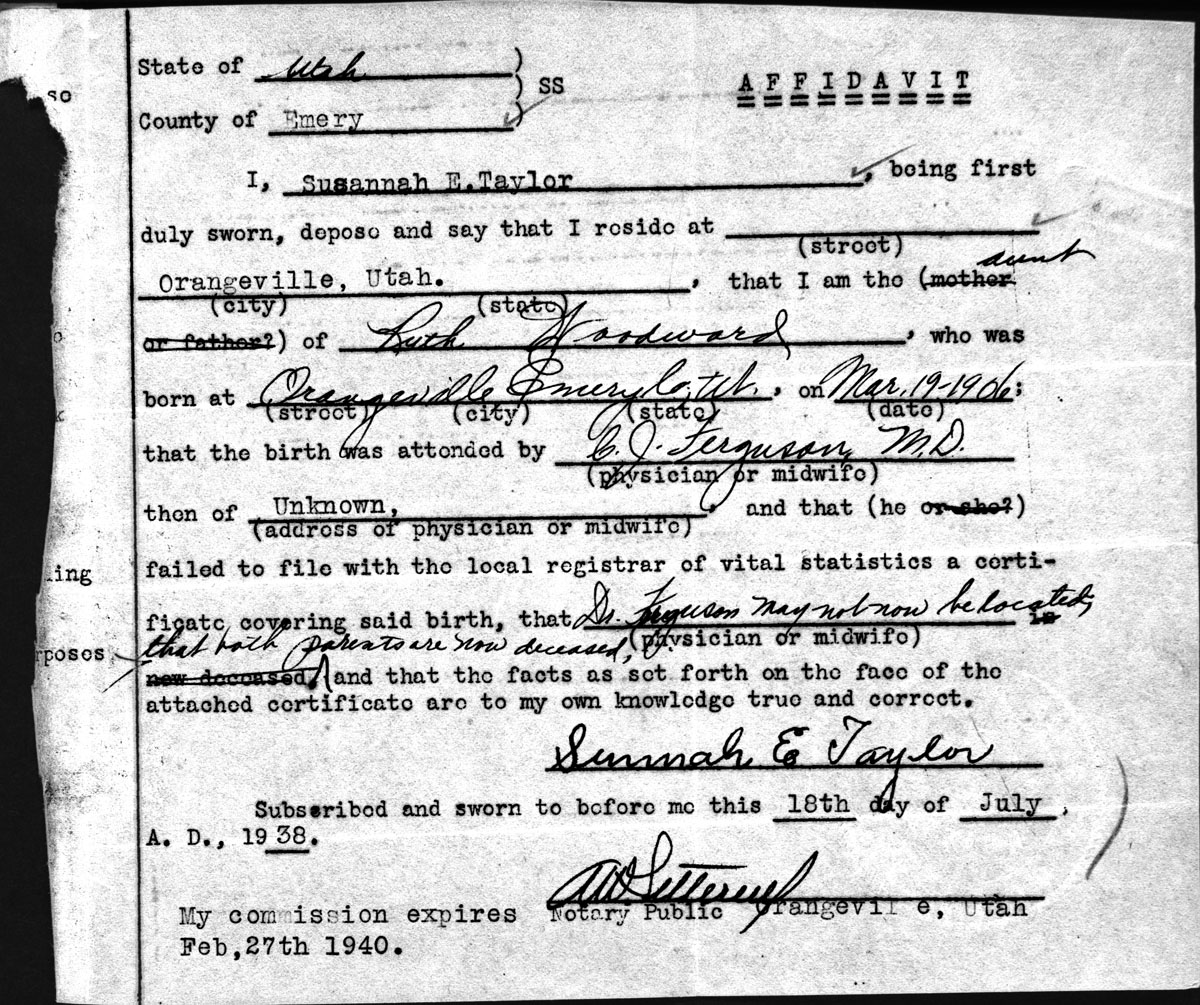 State of Utah ) SS AFFIDAVIT
County of Emery )
I, Susannah E.Taylor, being first
duly sworn, depose and say that I reside at
(street)
aunt
Orangeville, Utah. , that I am the (mother
(city) (state)
or father?) of Ruth Woodward, who was
born at Orangeville Emery Co, Ut., on Mar. 19-1906;
(street) (city) (state) (date)
that the birth was attended by C. J. Ferguson, M.D.
(physician or midwife)
then of Unknown, , and that (he or she?)
(address of physician or midwife)
failed to file with the local registrar of vital statistics a certi-
ficate covering said birth, that Dr. Ferguson may not now be located; is
that both parents are now deceased, (physician or midwife)
now deceased, and that the facts as set forth on the face of the
attached certificate are to my own knowledge true and correct.
Sunnah E Taylor
Subscribed and sworn to before me this 18th day of July,
A. D., 19 38.
My commission expires Notary Public Orangeville, Utah
Feb,27th 1940.
so
ling
rposes